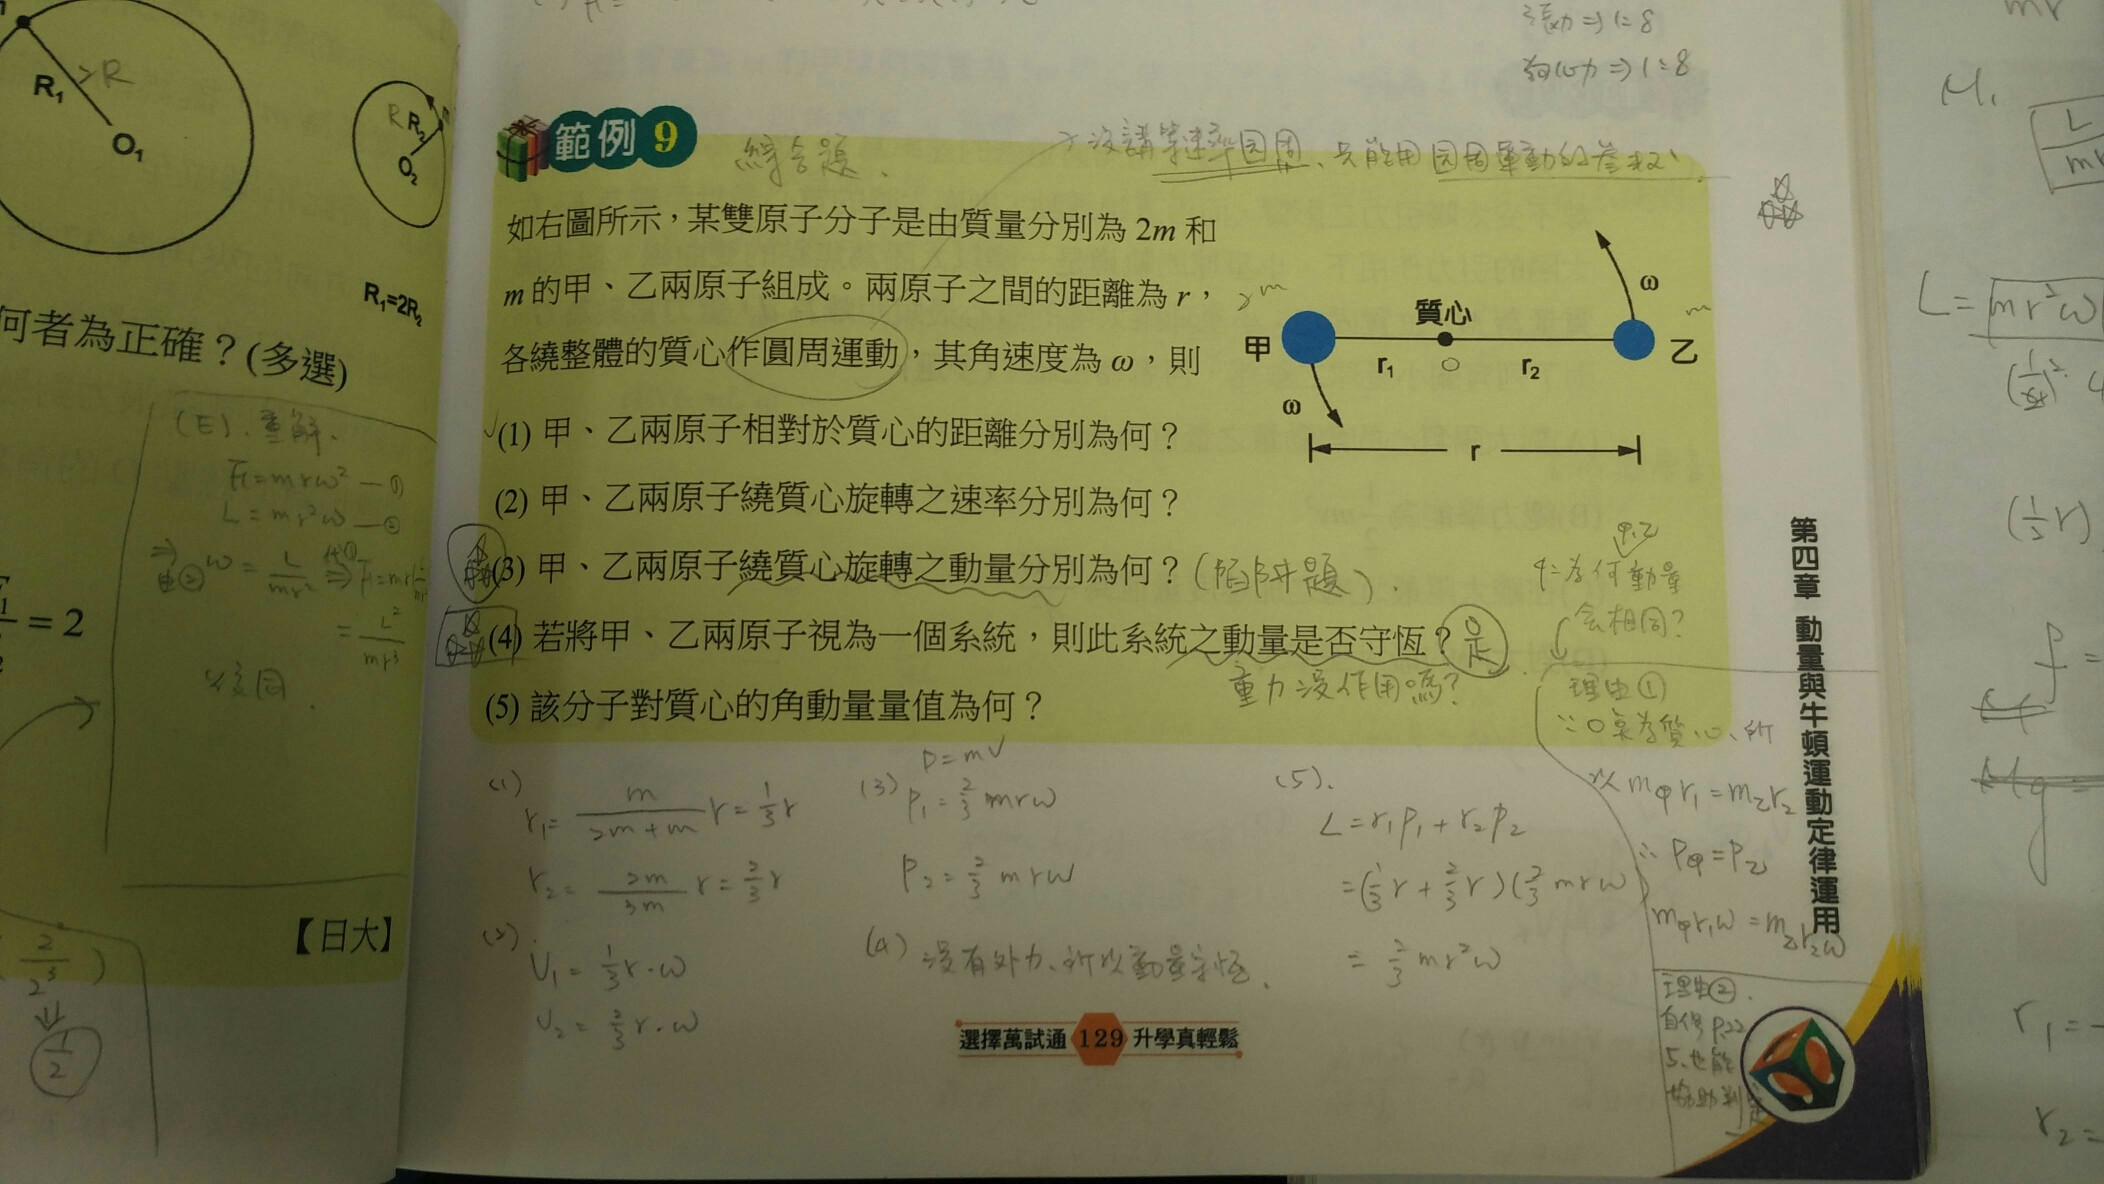 R₁
>R
O₁
R
R₂
O₂
R₁=2R₂
何者為正確？(多選)
(E).重解.
F=mrω² —①
L=mr²ω —②
= 2
【日大】
張力⇒1:8
向心力⇒1:8
範例 9
綜合題.
沒講等速率圓周、只能用圓周運動的
如右圖所示，某雙原子分子是由質量分別為 2m 和
m 的甲、乙兩原子組成。兩原子之間的距離為 r，
各繞整體的質心作圓周運動，其角速度為 ω，則
(1) 甲、乙兩原子相對於質心的距離分別為何？
(2) 甲、乙兩原子繞質心旋轉之速率分別為何？
(3) 甲、乙兩原子繞質心旋轉之動量分別為何？(陷阱題).
(4) 若將甲、乙兩原子視為一個系統，則此系統之動量是否守恆？是
重力沒作用嗎?
(5) 該分子對質心的角動量量值為何？
2m
m
ω
質心
甲
乙
r₁
O
r₂
ω
r
甲乙
為何動量
会相同?
理由①
∵O點為質心、所
以 m甲r₁=m乙r₂
∴ P甲=P乙
m甲r₁ω=m乙r₂ω
理由②.
第四章 動量與牛頓運動定律運用
(1)
r₁= m/(2m+m) r = 1/3 r
r₂= 2m/3m r = 2/3 r
(2)
V₁= 1/3 r·ω
V₂= 2/3 r·ω
P=mV
(3) P₁= 2/3 mrω
P₂= 2/3 mrω
(4) 沒有外力、所以動量守恆.
(5).
L=r₁P₁+r₂P₂
=(1/3 r + 2/3 r)(2/3 mrω)
= 2/3 mr²ω
選擇萬試通 129 升學真輕鬆
L=mr²ω